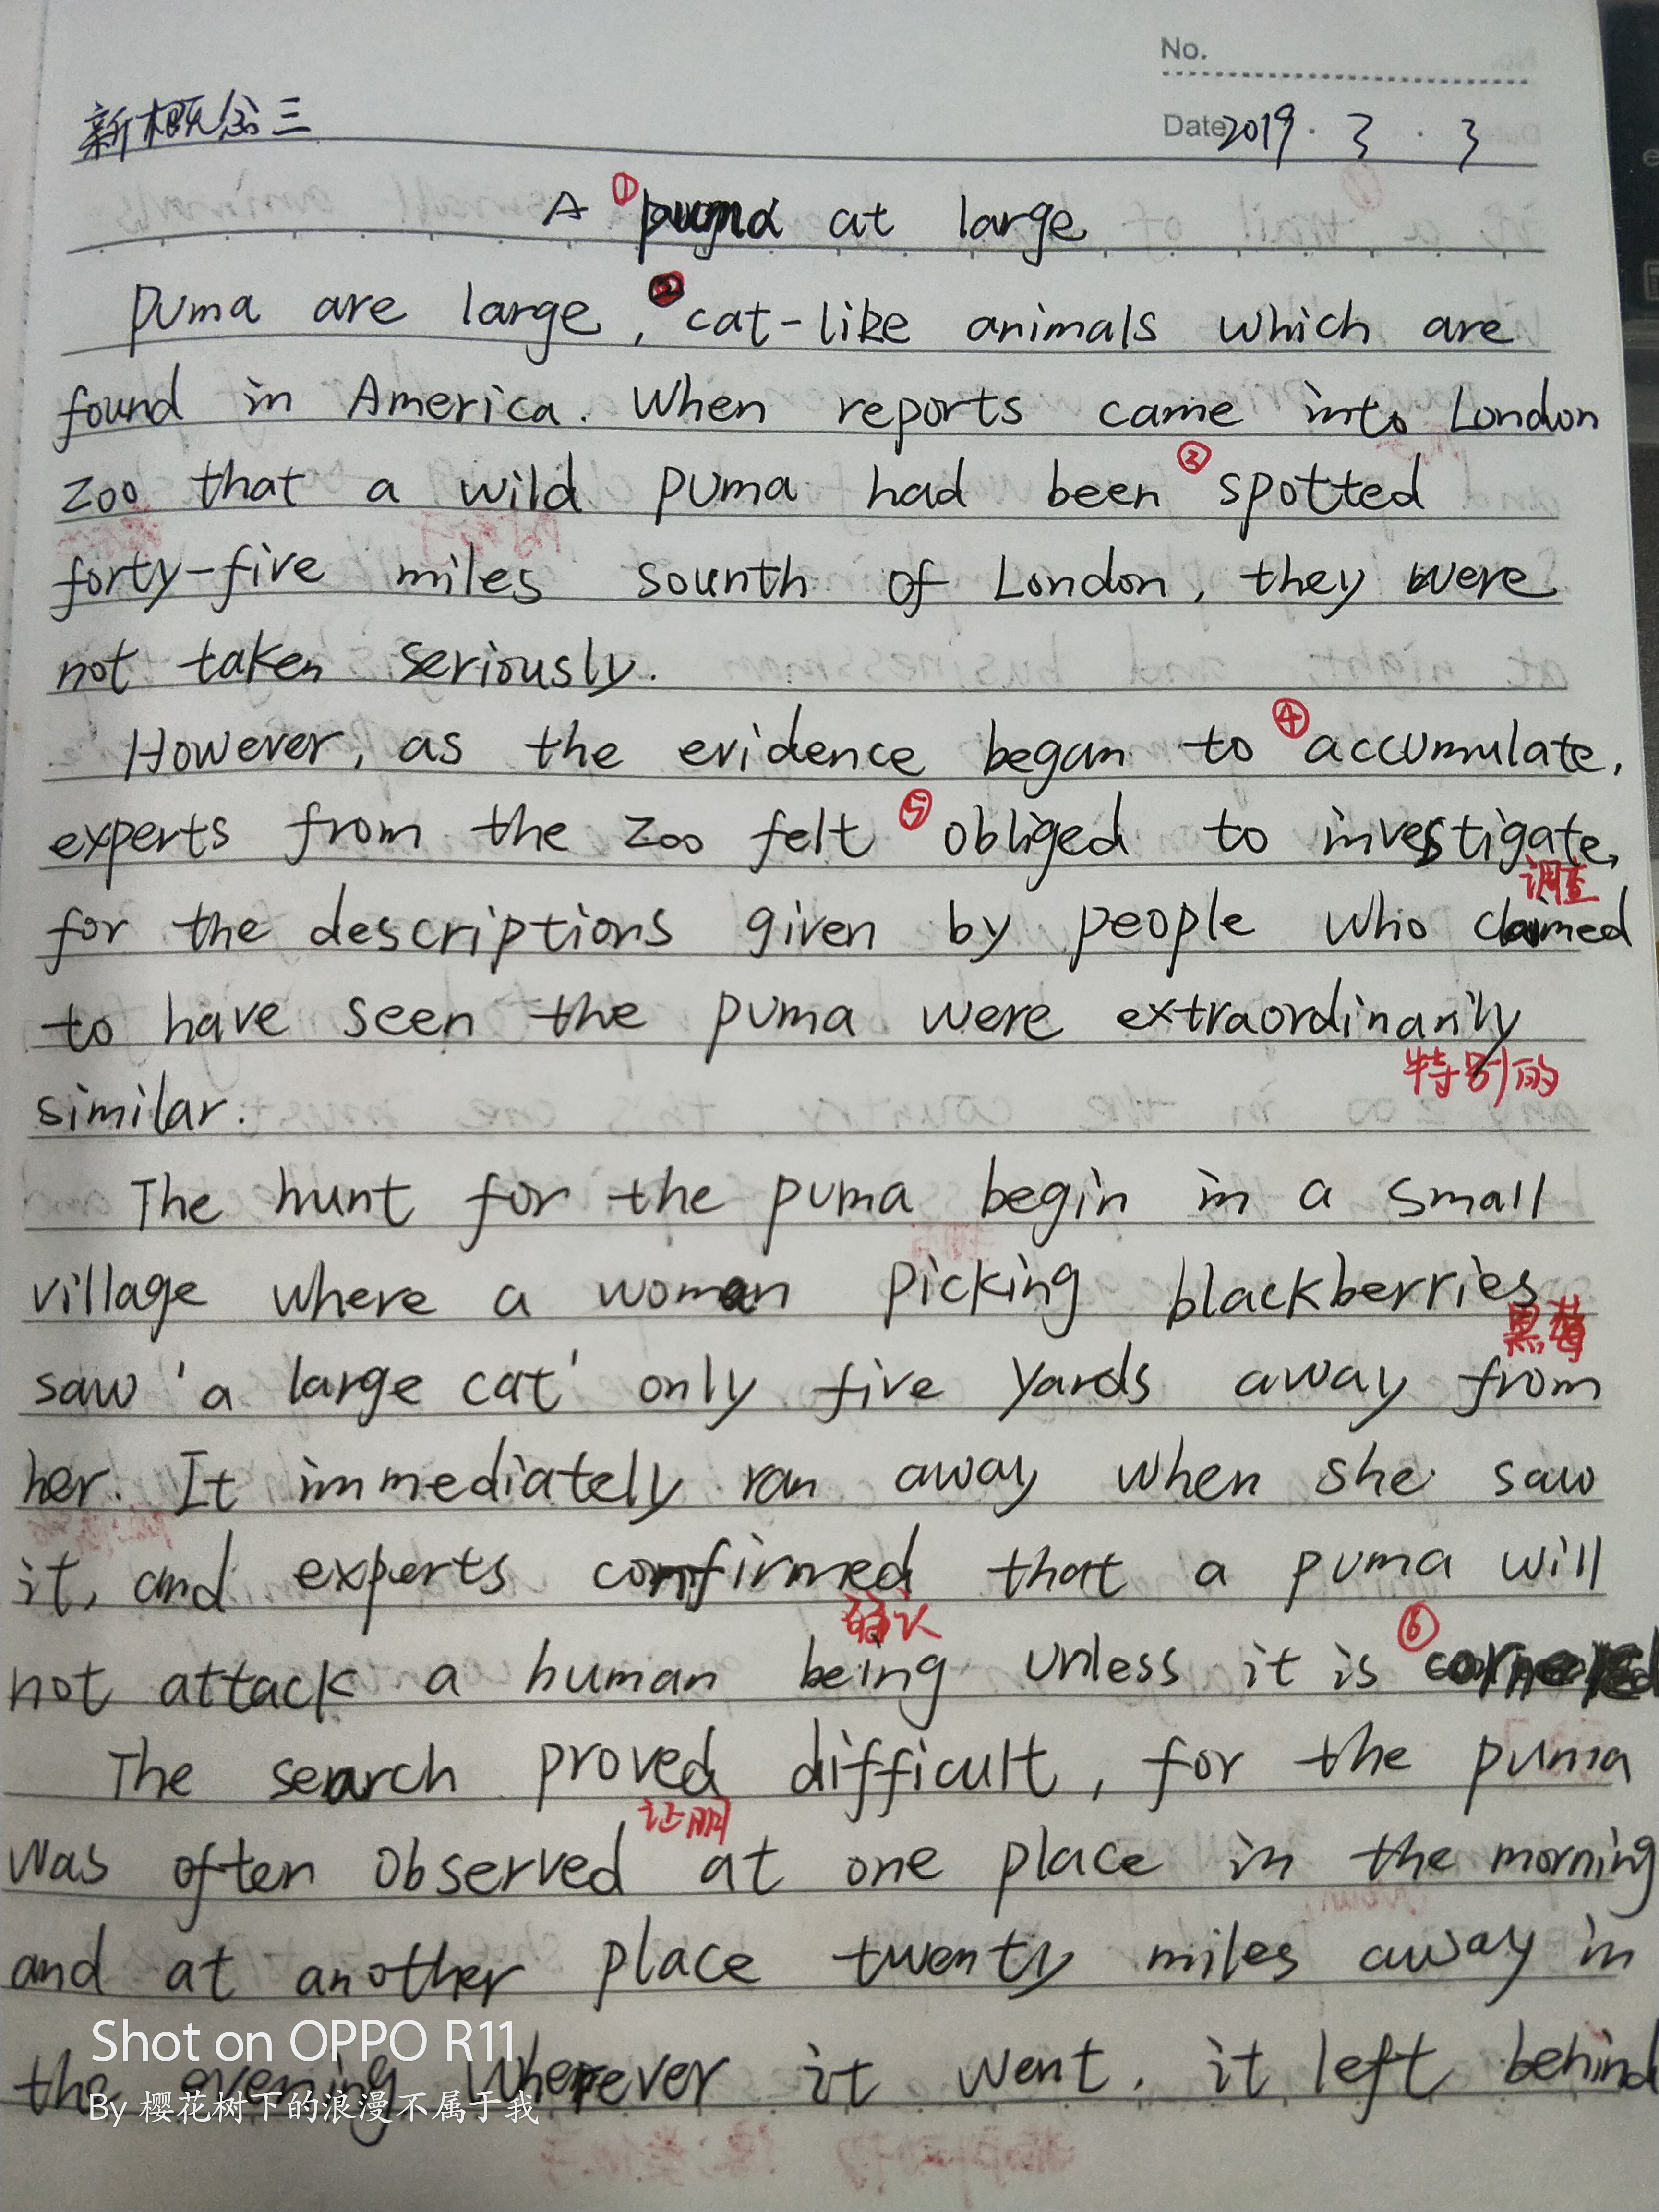 No.
新概念三
Date 2019.3.3
A ①puma at large
puma are large, ②cat-like animals which are
found in America. When reports came into London
zoo that a wild puma had been ③spotted
forty-five miles sounth of London, they were
not taken seriously.
However, as the evidence began to ④accumulate,
experts from the zoo felt ⑤obliged to investigate,
调查
for the descriptions given by people who claimed
to have seen the puma were extraordinarily
特别的
similar.
The hunt for the puma begin in a small
village where a woman picking blackberries
黑莓
saw 'a large cat' only five yards away from
her. It immediately ran away when she saw
it, and experts confirmed that a puma will
确认
not attack a human being unless it is ⑥cornered
The search proved difficult, for the puma
证明
was often observed at one place in the morning
and at another place twenty miles away in
the evening Wherever it went, it left behind
Shot on OPPO R11
By 樱花树下的浪漫不属于我